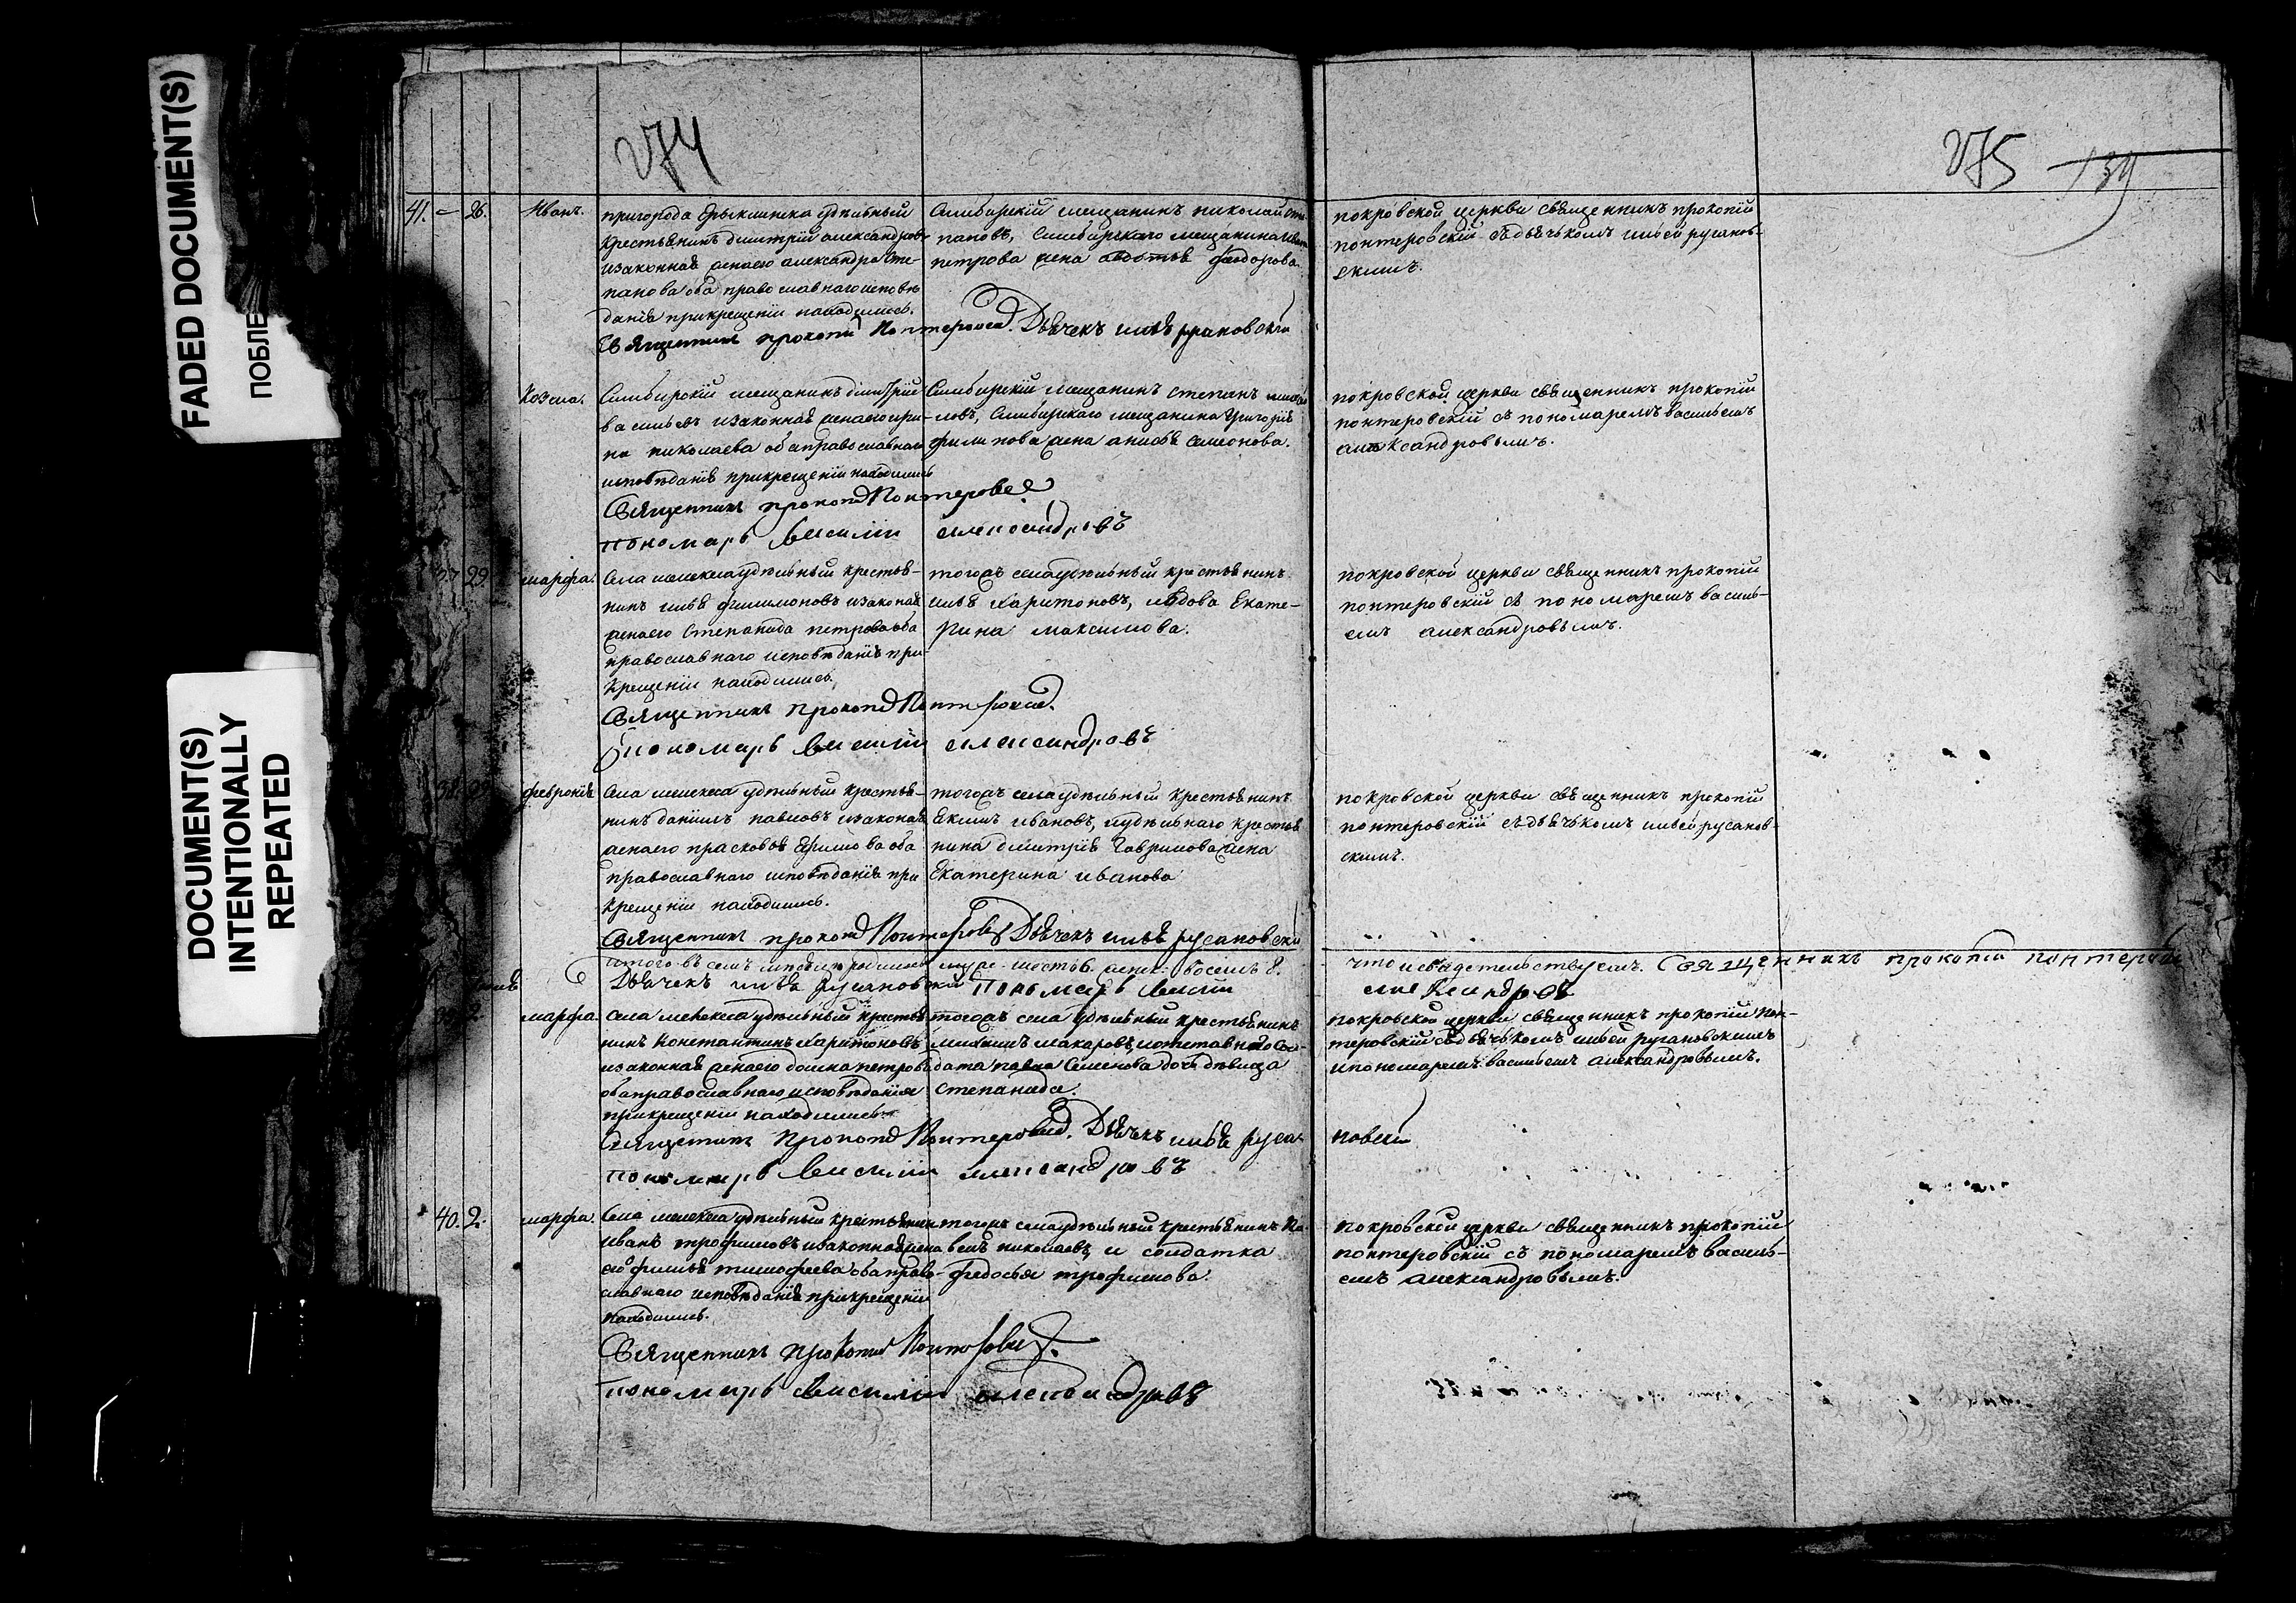 FADED DOCUMENT(S)
ПОБЛЕ
DOCUMENT(S)
INTENTIONALLY
REPEATED
274
275
139
41. – 26.
Иванъ.
пригорода Ерыклинска удѣльный
крестьянинъ димитрій александровъ
изаконная женаего александра сте-
панова оба православнаго исповѣ
данія прикрещеніи находились.
Симбирскій мещанинъ николай сте
пановъ, Симбирскаго мещанина иван
петрова жена авдотья феодорова.
покровской церкви священникъ прокопій
понтеровскій съдьячькомъ ильей русанов-
скимъ.
Священникъ прокопій Понтеровскій. Дьячекъ илья русановскій
Козма.
Симбирскій мещанинъ димитрій
васильевъ изаконная женаего ири-
на николаева оба православнаго
исповѣданія прикрещеніи находились
Симбирскій мещанинъ степанъ михай
ловъ, Симбирскаго мещанина Григорія
филипова жена анисья семонова.
покровской церкви священникъ прокопій
понтеровскій съ пономаремъ васильемъ
александровымъ.
Священникъ прокопій Понтеровскій
пономарь василій александровъ
37. 29.
марфа.
Села мелекеса удѣльный крестья-
нинъ илья филимоновъ изаконая
женаего Степанида петрова оба
православнаго исповѣданія при-
крещеніи находились.
тогожъ села удѣльный крестьянинъ
илья харитоновъ, ивдова Екате-
рина максимова.
покровской церкви священникъ прокопій
понтеровскій съ пономаремъ василь-
емъ александровымъ.
Священникъ прокопій Понтеровскій.
пономарь василій александровъ
38. 29.
февронія
Села мелекеса удѣльный крестья-
нинъ данилъ павловъ изаконая
женаего прасковья Ефимова оба
православнаго исповѣданія при
крещеніи находились.
тогожъ села удѣльный крестьянинъ
Екимъ ивановъ, иудѣльнаго крестья
нина димитрія Гаврилова жена
Екатерина иванова
покровской церкви священникъ прокопій
понтеровскій съдьячькомъ ильей русанов-
скимъ.
Священникъ прокопій Понтеровскій Дьячекъ илья русановскій
итого въ семъ месяце родилось муже. шесть 6. женск. восемь 8.
что исвидетельствуемъ. Священникъ прокопій понтеровскій
Дьячекъ илья русановскій пономарь василій
александровъ
39. 2.
марфа.
Села мелекеса удѣльный крестья
нинъ Константинъ Харитоновъ
изаконная женаего домна петрова
оба православнаго исповѣданія
прикрещеніи находились.
тогожъ села удѣльный крестьянинъ
михаилъ макаровъ, иотставного сол-
дата павла Семенова дочь дѣвица
степанида.
покровской церкви священникъ прокопій пон-
теровскій съдьячькомъ ильей русановскимъ
ипономаремъ васильемъ александровымъ.
Священникъ прокопій Понтеровскій. Дьячекъ илья руса-
новскій
пономарь василій александровъ
40. 2.
марфа.
Села мелекеса удѣльный крестьянин
иванъ трофимовъ изаконная жена
его фимья тимофеева оба право-
славнаго исповѣданія прикрещеніи
находились.
тогожъ села удѣльный крестьянинъ па-
велъ николаевъ и солдатка
федосья трофимова.
покровской церкви священникъ прокопій
понтеровскій съ пономаремъ василь-
емъ александровымъ.
Священникъ прокопій Понтеровскій.
пономарь василій александровъ